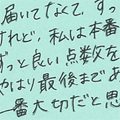 届いてなくて、すっ
けれど、私は本番
ずっと良い点数を
やはり最後まであ
一番大切だと思